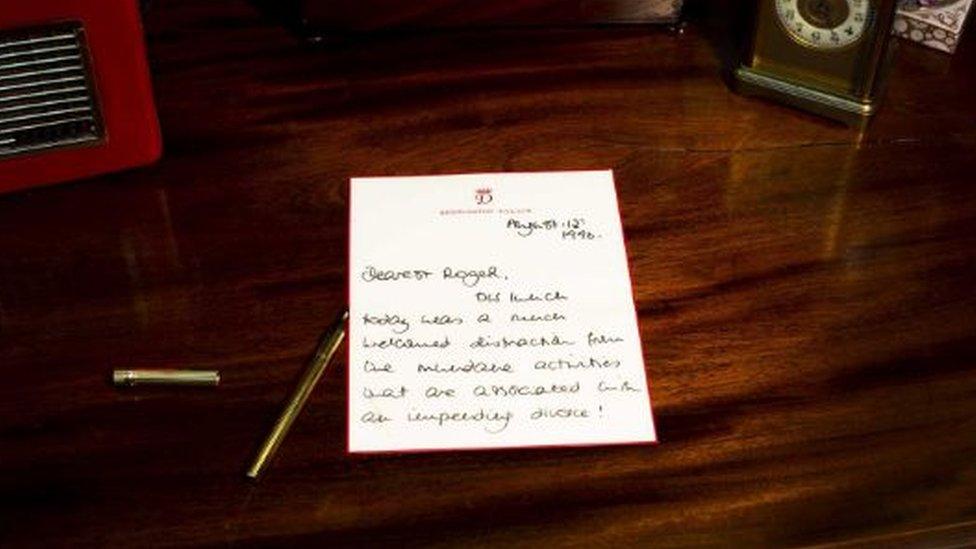 D
KENSINGTON PALACE
August. 12th
1996.
Dearest Roger,
Our lunch
today was a much
welcomed distraction from
the mundane activities
that are associated with
an impending divorce!